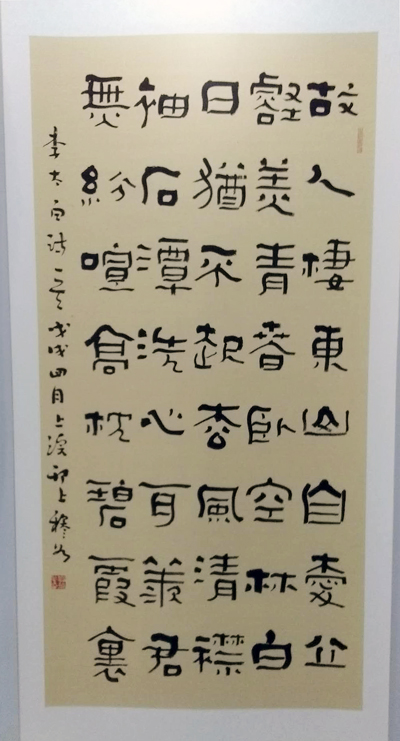 故人棲東山自愛丘
壑美青春卧空林白
日猶不起枩風清襟
袖石潭洗心耳羨君
無紛喧高枕碧霞裏
李太白詩一首戊戌四月上浣邗上